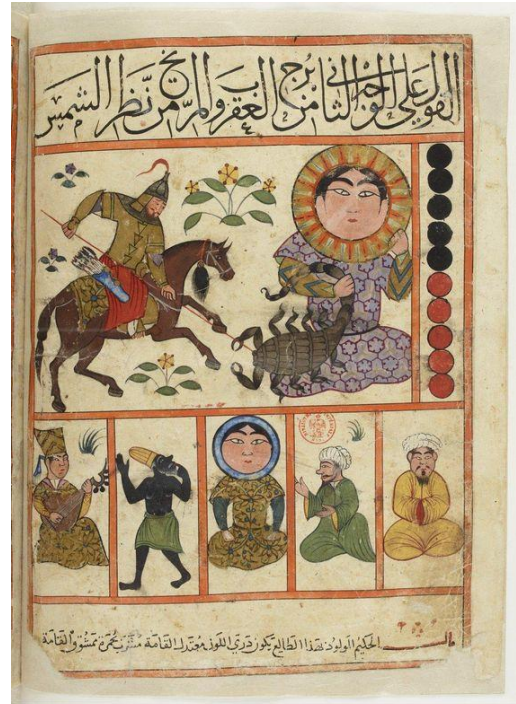 القول على الوجه الثانى من برج العقرب والمريخ من نظر الشمس
قال الحكيم المولود بهذا الطالع يكون درى اللون معتدل القامة مشرب بحمرة ممشوق القامة